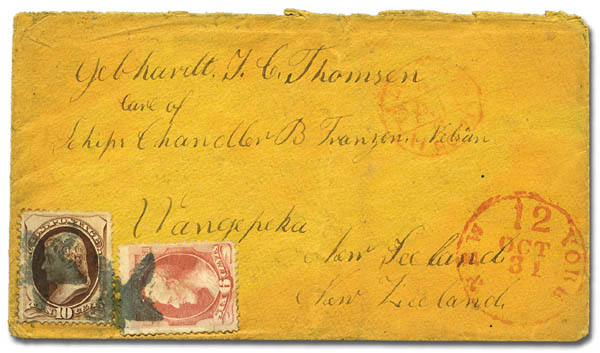 Gebhardt. J. C. Thomsen
Care of
Schips Chandler B Franzen. Nelsån
Wangepeka
New Seeland
New Zeeland
12
OCT
31
YORK
10